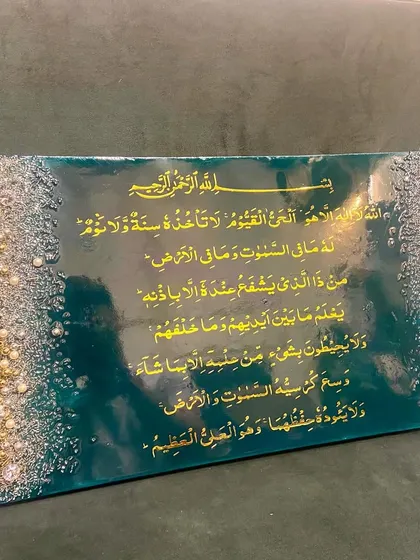 بِسْمِ اللّٰهِ الرَّحْمٰنِ الرَّحِيْمِ
اَللّٰهُ لَاۤ اِلٰهَ اِلَّا هُوَ ۚ اَلْحَىُّ الْقَيُّوْمُ ۚ لَا تَاْخُذُهٗ سِنَةٌ وَّلَا نَوْمٌ ؕ
لَهٗ مَا فِى السَّمٰوٰتِ وَمَا فِى الْاَرْضِ ؕ
مَنْ ذَا الَّذِىْ يَشْفَعُ عِنْدَهٗۤ اِلَّا بِاِذْنِهٖ ؕ
يَعْلَمُ مَا بَيْنَ اَيْدِيْهِمْ وَمَا خَلْفَهُمْ ۚ
وَلَا يُحِيْطُوْنَ بِشَىْءٍ مِّنْ عِلْمِهٖۤ اِلَّا بِمَا شَآءَ ۚ
وَسِعَ كُرْسِيُّهُ السَّمٰوٰتِ وَالْاَرْضَ ۚ
وَلَا يَئُوْدُهٗ حِفْظُهُمَا ۚ وَهُوَ الْعَلِىُّ الْعَظِيْمُ ؕ